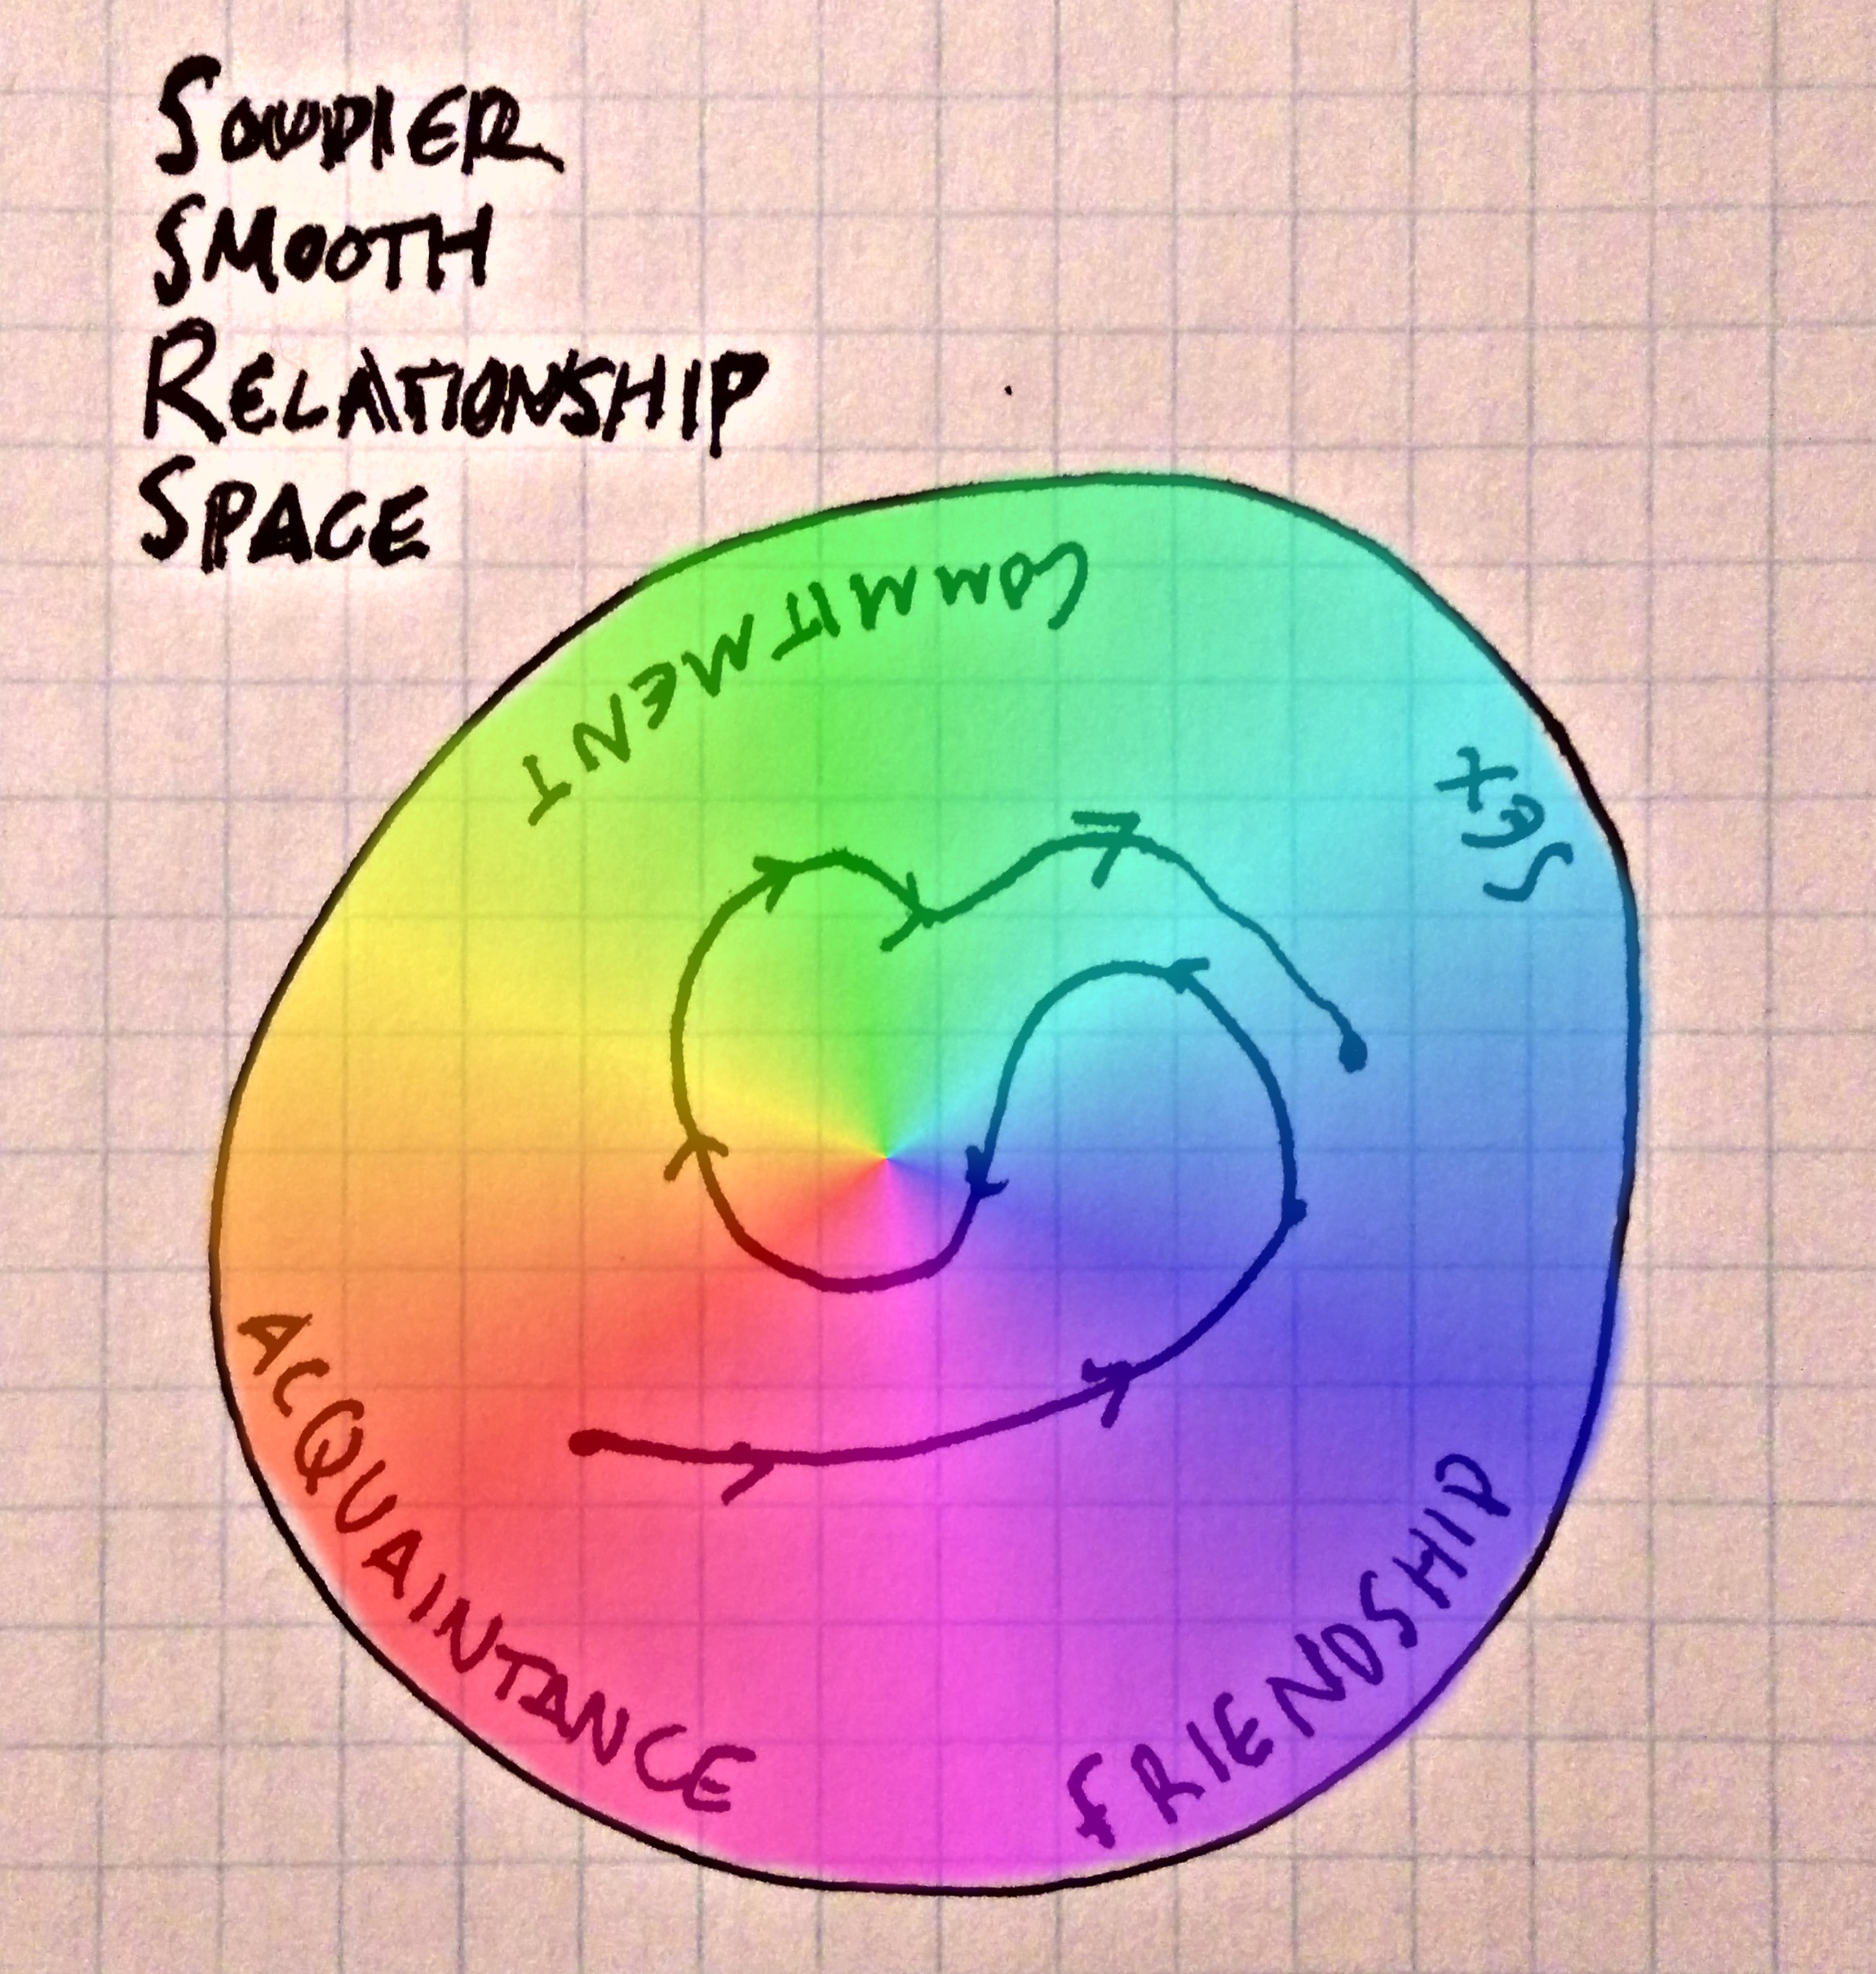 SMOOTH
RELATIONSHIP
SPACE
COMMITMENT
SEX
ACQUAINTANCE
FRIENDSHIP